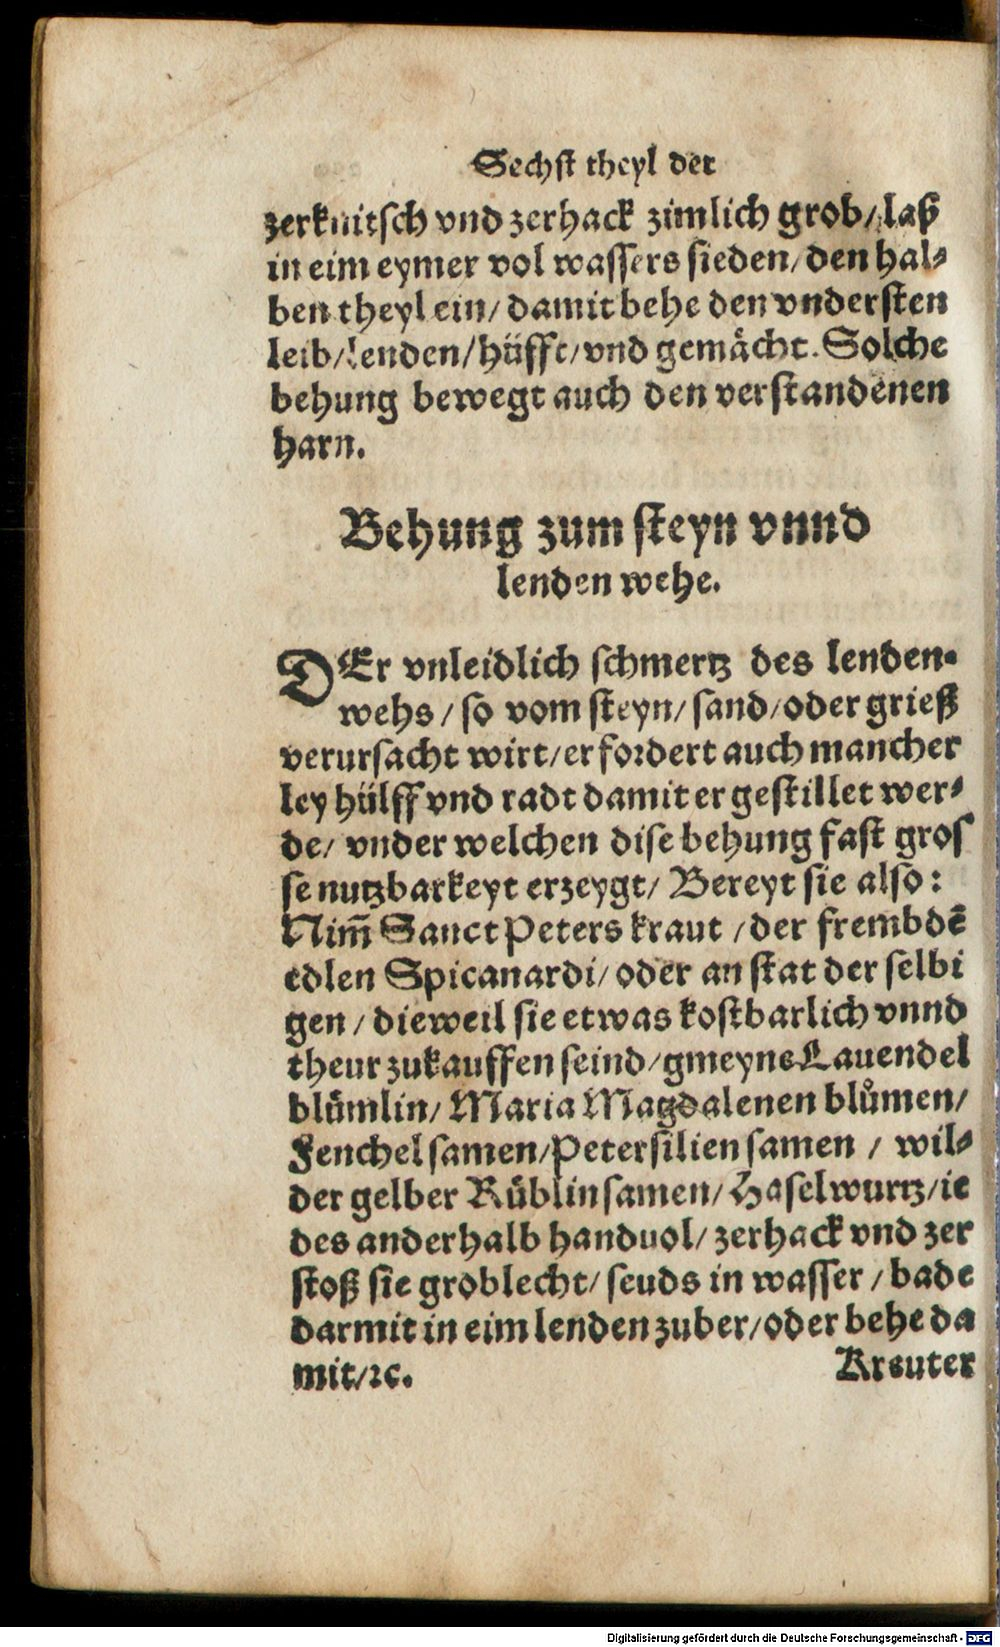 Sechst theyl der
zerknitsch vnd zerhack zimlich grob/ laß
in eim eymer vol wassers sieden/ den hal⸗
ben theyl ein/ damit behe den vndersten
leib/ lenden/ hüfft/ vnd gemächt. Solche
behung bewegt auch den verstandenen
harn.
Behung zum steyn vnnd
lenden wehe.
DEr vnleidlich schmertz des lenden⸗
wehs / so vom steyn/ sand/ oder grieß
verursacht wirt/ erfordert auch mancher
ley hülff vnd radt damit er gestillet wer⸗
de/ vnder welchen dise behung fast gros
se nutzbarkeyt erzeygt/ Bereyt sie also:
Nim̃ Sanct Peters kraut / der frembdẽ
edlen Spicanardi/ oder an stat der selbi
gen / dieweil sie etwas kostbarlich vnnd
theur zukauffen seind/ gmeyne Lauendel
blümlin/ Maria Magdalenen blůmen/
Fenchel samen/ Petersilien samen / wil⸗
der gelber Rüblin samen/ Haselwurtz/ ie
des anderhalb handuol/ zerhack vnd zer
stoß sie groblecht/ seuds in wasser / bade
darmit in eim lenden zuber/ oder behe da
mit/ ꝛc. Kreuter
Digitalisierung gefördert durch die Deutsche Forschungsgemeinschaft - DFG